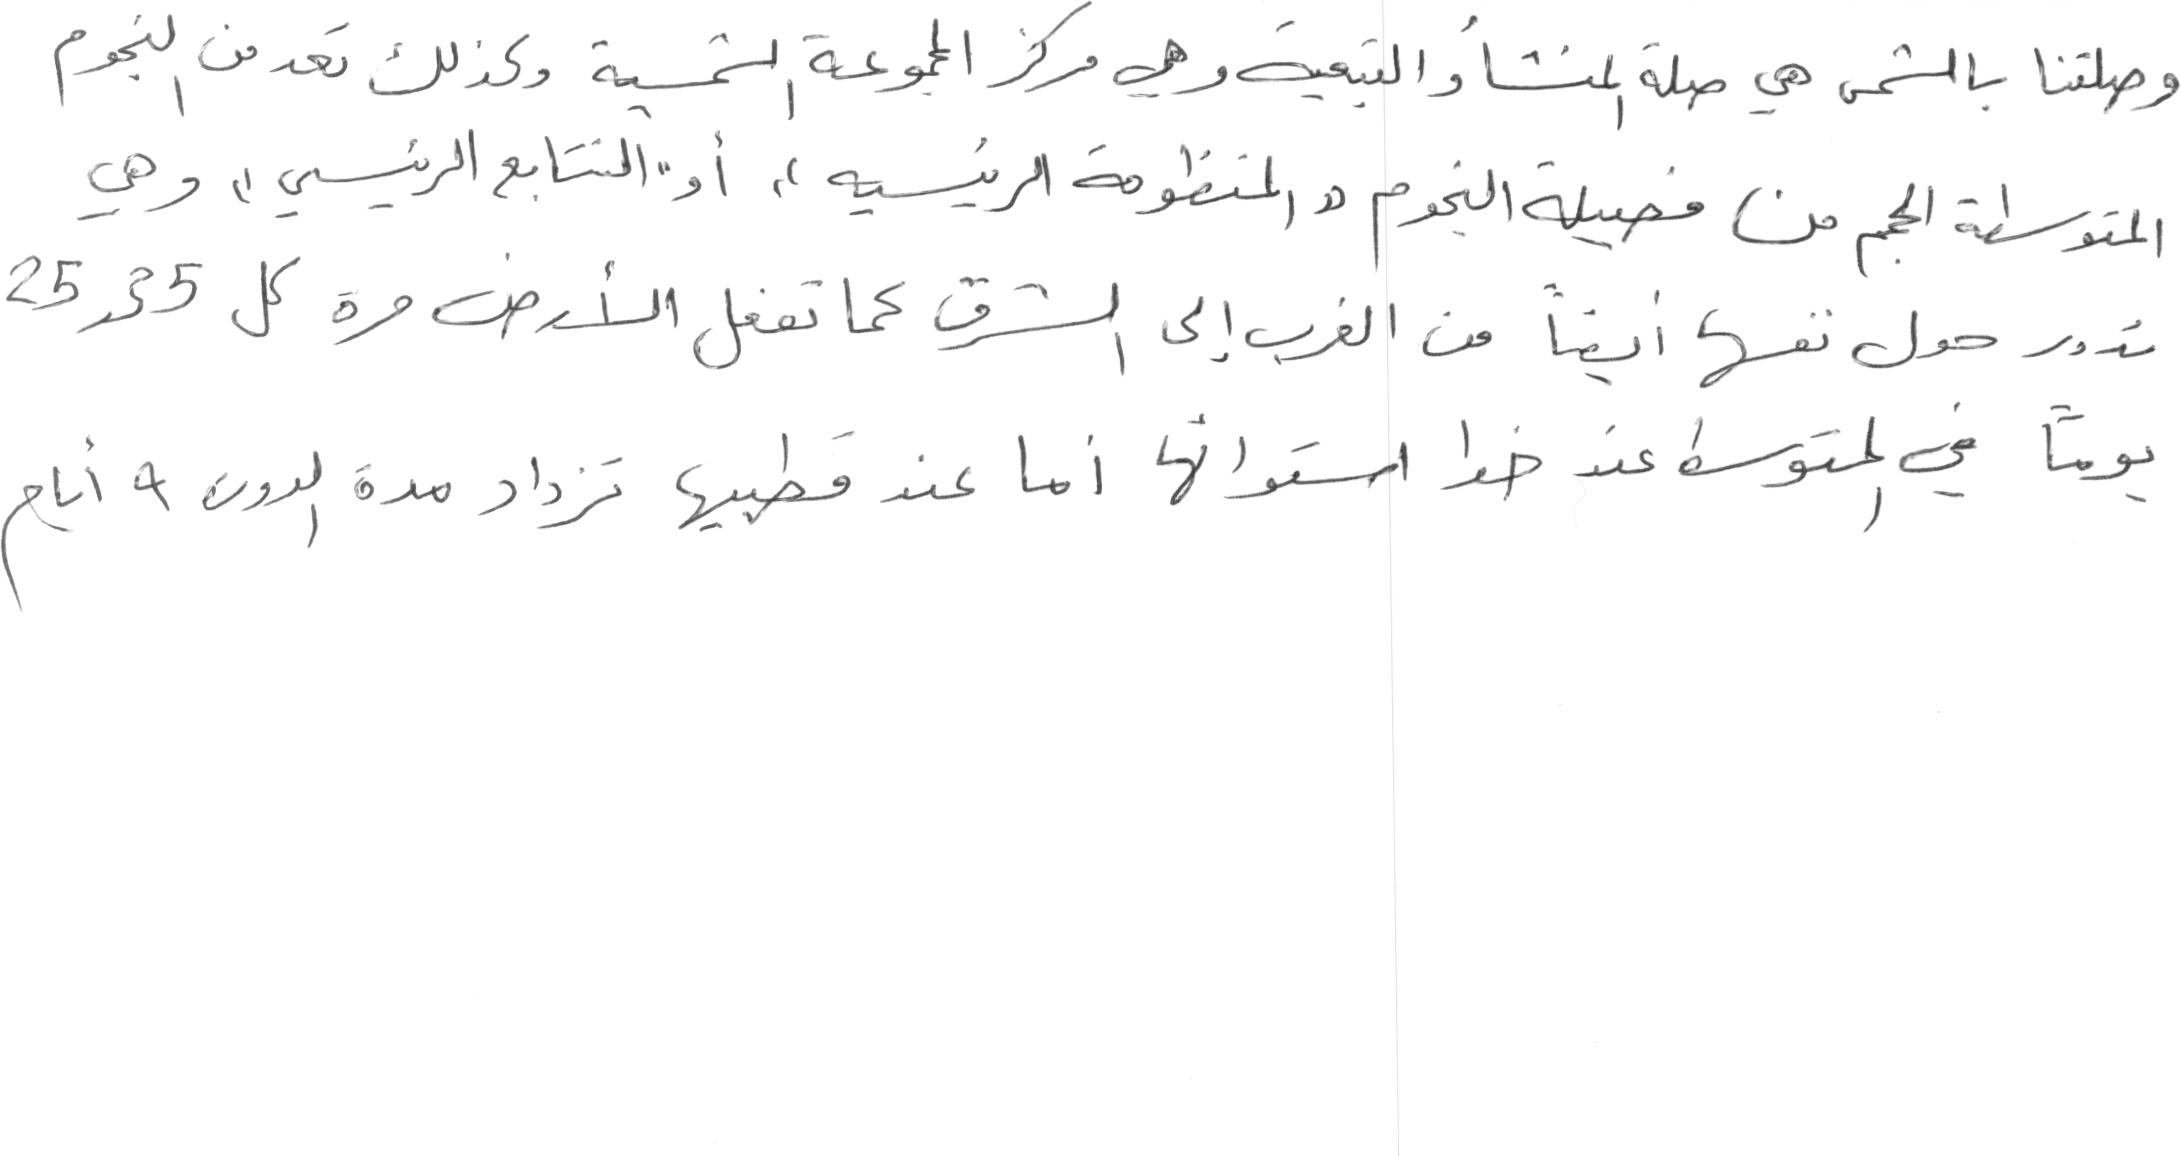 وصلتنا بالشمس هي صلة المنشأ والتبعية وهي مركز المجموعة الشمسية وكذلك تعد من النجوم
المتوسطة الحجم من فصيلة النجوم " المنظومة الرئيسيه " أو " التتابع الرئيسي " وهي
تدور حول نفسها أيضاً من الغرب إلى الشرق كما تفعل الأرض مرة كل 25
يوماً في المتوسط عند خط استوائها أما عند قطبيها تزداد مدة الدورة ٩ أيام